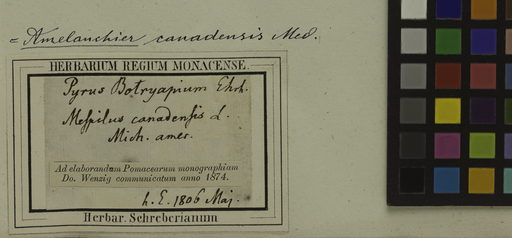 = Amelanchier canadensis Med.
HERBARIUM REGIUM MONACENSE.
Pyrus Botryapium Ehrh.
Meſpilus canadenſis L.
Mich. amer.
Ad elaborandam Pomacearum monographiam
Do. Wenzig communicatum anno 1874.
h. E. 1806 Maj.
Herbar. Schreberianum